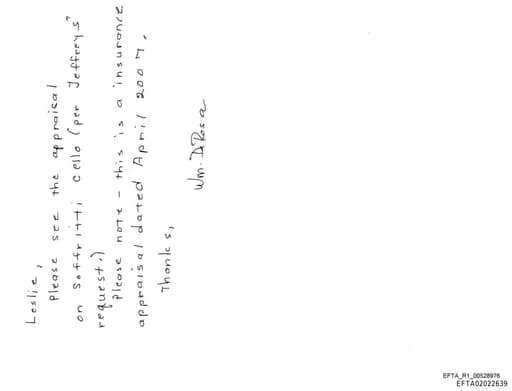 Leslie,
Please see the appraisal
on Soffritti Cello (per Jeffrey's"
request.)
Please note - this is a insurance
appraisal dated April 2007.
Thanks,
Wm. DeRosa
EFTA_R1_00528976
EFTA02022639